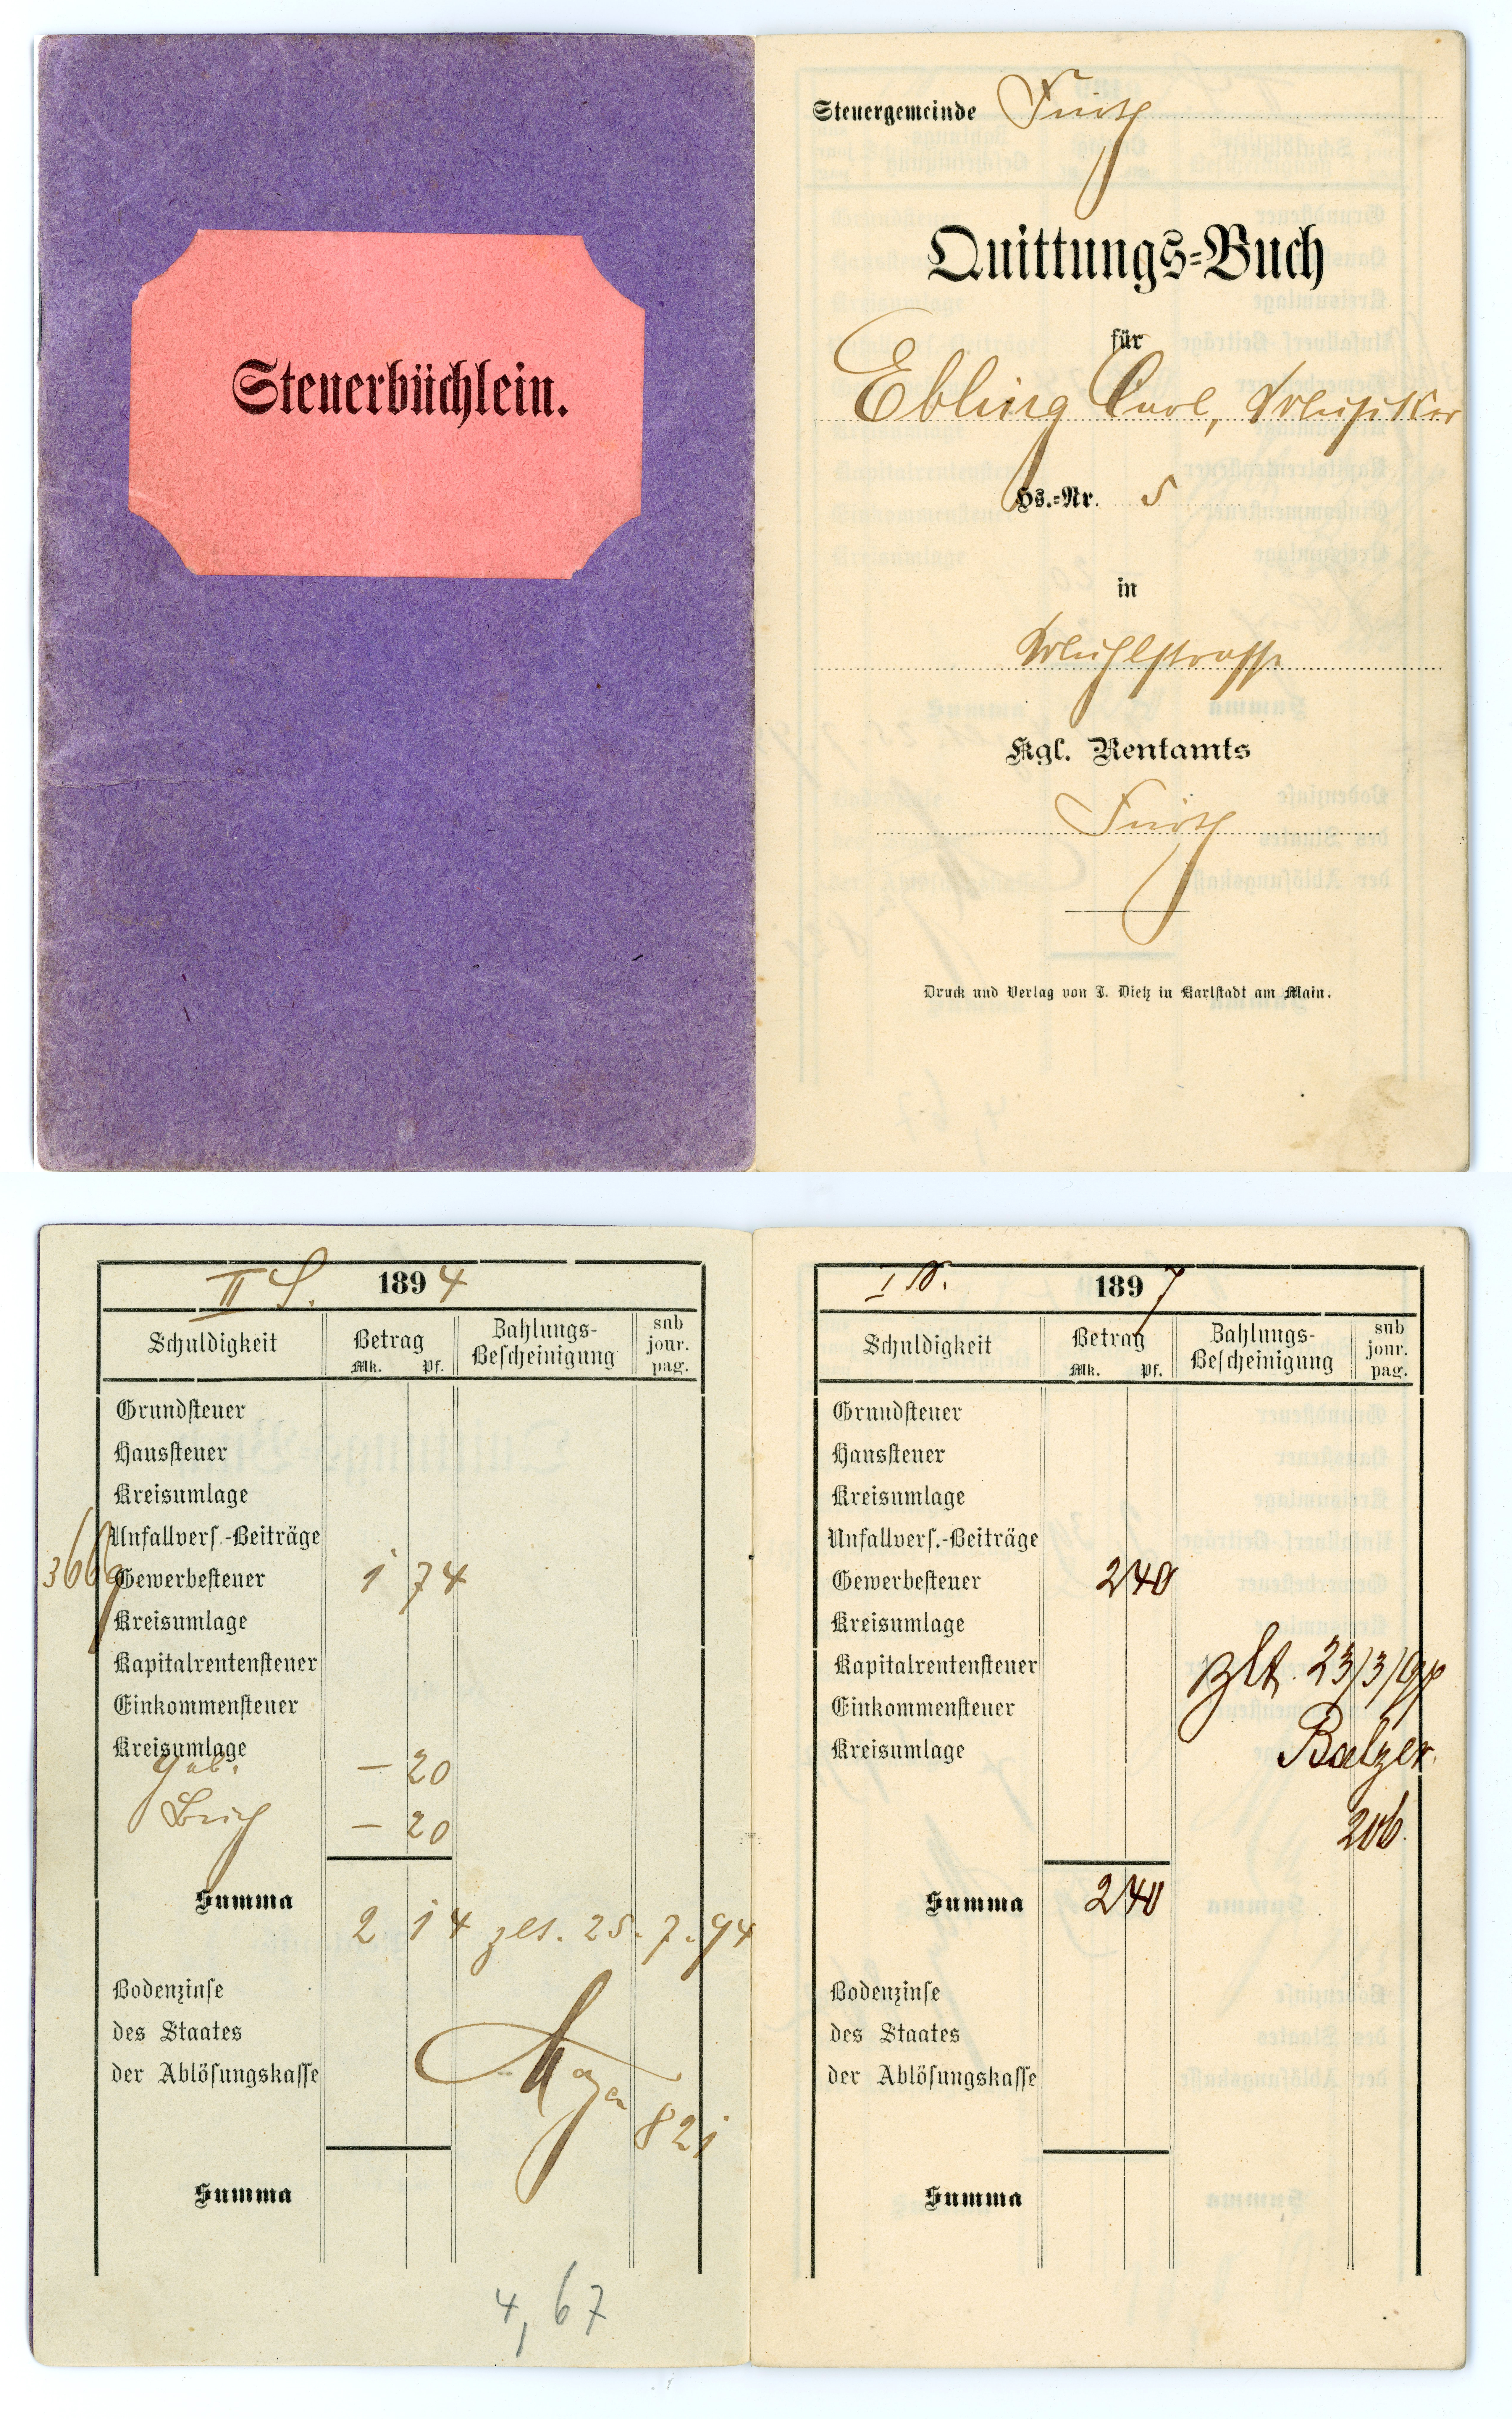 Steuerbüchlein.
Steuergemeinde Fürth
Quittungs-Buch
für
Ebling Carl, Musiker
Hs.-Nr. 5
in
Mühlstrasse
Kgl. Rentamts
Fürth
Druck und Verlag von J. Dietz in Karlstadt am Main.
II S. 1894
Schuldigkeit Betrag Zahlungs-Bescheinigung sub jour. pag.
Mk. Pf.
Grundsteuer
Haussteuer
Kreisumlage
Unfallvers.-Beiträge
366 Gewerbesteuer 1 74
Kreisumlage
Kapitalrentensteuer
Einkommensteuer
Kreisumlage
Geb. — 20
Buch — 20
Summa 2 14 25.7.94
821
Bodenzinse
des Staates
der Ablösungskasse
Summa
4,67
I 1897
Schuldigkeit Betrag Zahlungs-Bescheinigung sub jour. pag.
Mk. Pf.
Grundsteuer
Haussteuer
Kreisumlage
Unfallvers.-Beiträge
Gewerbesteuer 2 40
Kreisumlage
Kapitalrentensteuer bzlt. 23/3/97
Einkommensteuer
Kreisumlage Balzer.
206.
Summa 2 40
Bodenzinse
des Staates
der Ablösungskasse
Summa